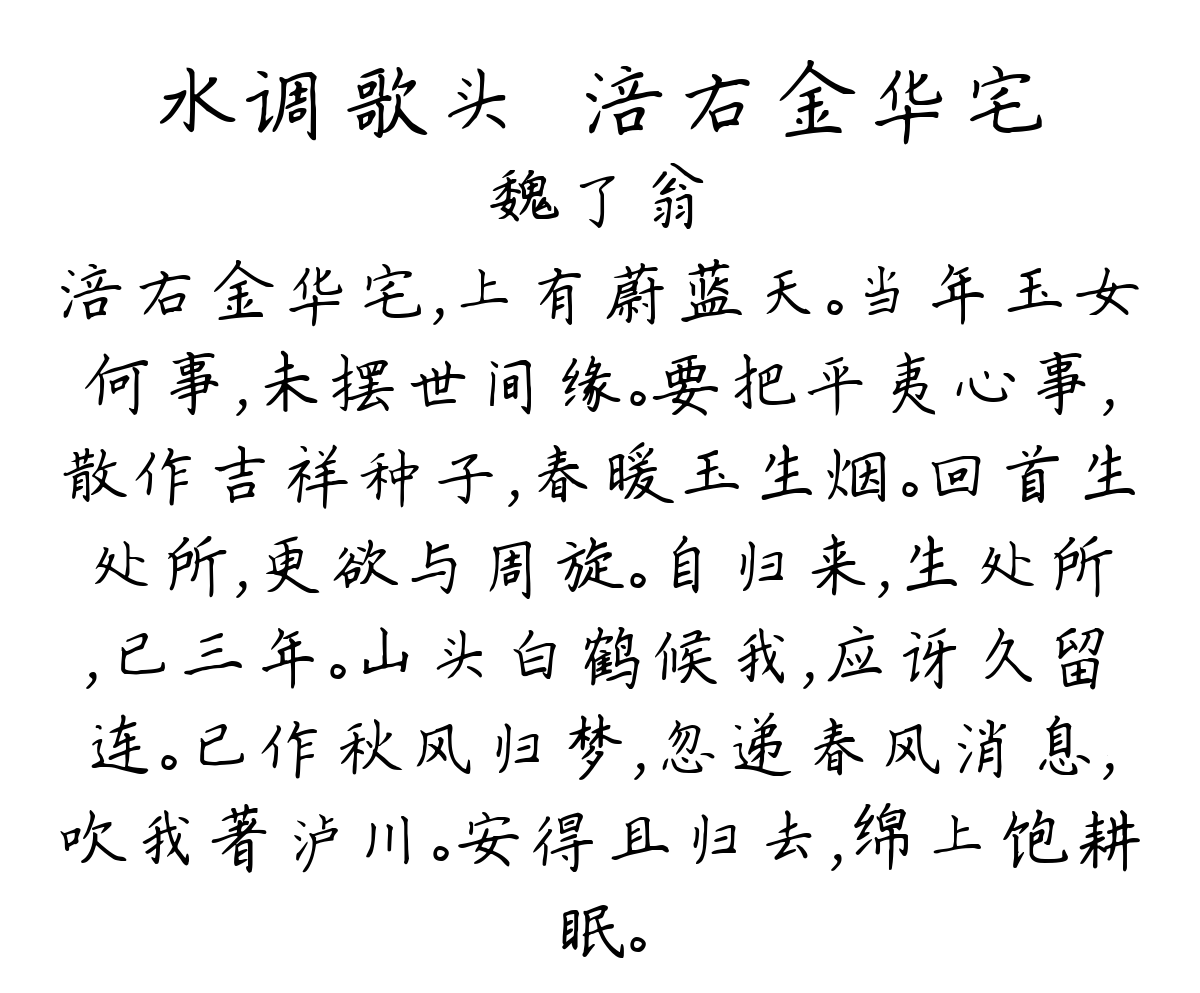 水调歌头 涪右金华宅
魏了翁
涪右金华宅,上有蔚蓝天。当年玉女
何事,未摆世间缘。要把平夷心事,
散作吉祥种子,春暖玉生烟。回首生
处所,更欲与周旋。自归来,生处所
,已三年。山头白鹤候我,应讶久留
连。已作秋风归梦,忽递春风消息,
吹我著泸川。安得且归去,绵上饱耕
眠。